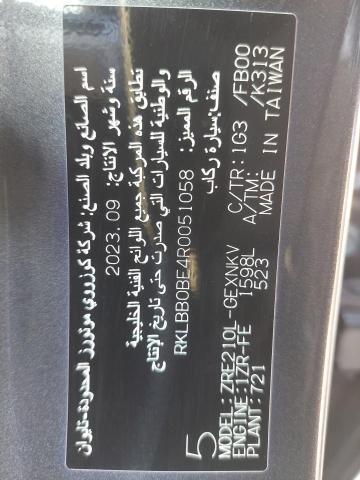 اسم الصانع وبلد الصنع: شركة كوزوي موتورز المحدودة-تايوان
سنة وشهر الإنتاج: 2023.09
تطابق هذه المركبة جميع اللوائح الفنية الخليجية
والوطنية للسيارات التي صدرت حتى تاريخ الإنتاج
الرقم المميز: RKLBB0BE4R0051058
صنف: سيارة ركاب
5
MODEL: ZRE210L-GEXNKV C/TR: 1G3 /FB00
ENGINE: 1ZR-FE 1598L A/TM: /K313
PLANT: 721 523 MADE IN TAIWAN